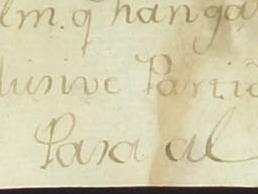 lm. q̃ han ga
lusive Parti
Para al